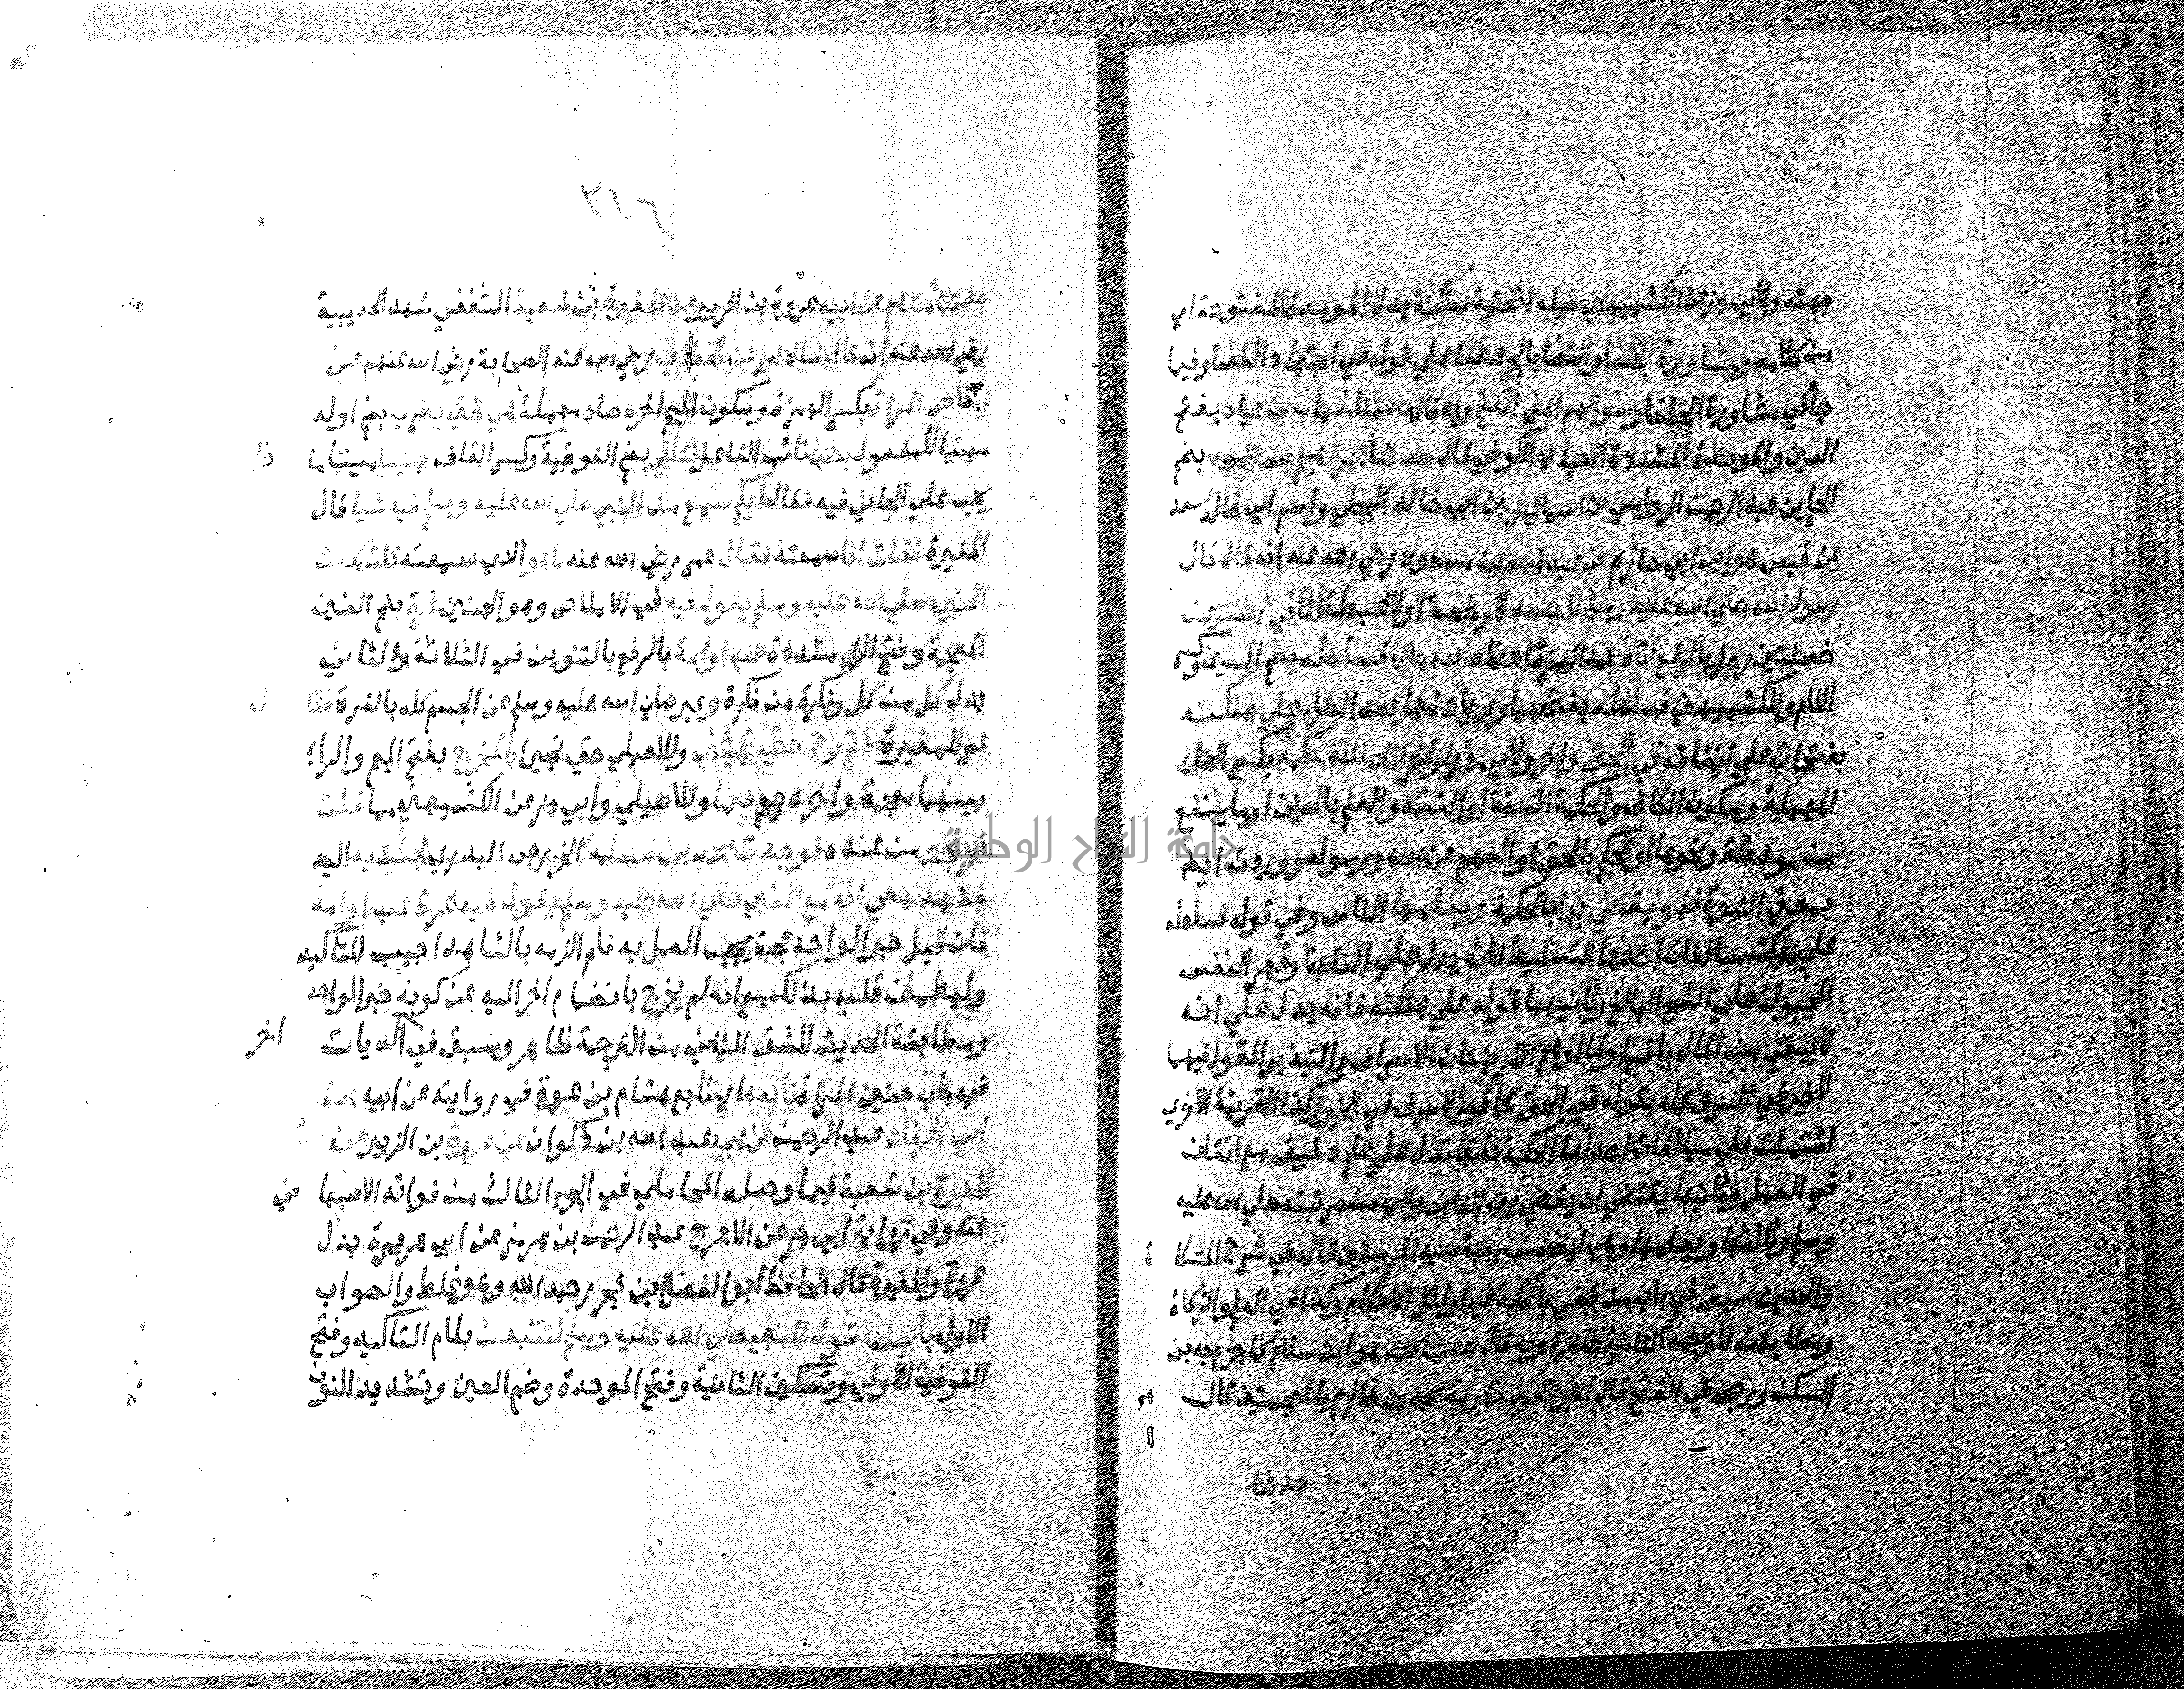 جهته ولابي ذر عن الكشميهني قيله بتحتية ساكنة بدل الموحدة المفتوحة اي
من كلامه ومشاورة الخلفا والقضا بالجر عطفا علي قوله في اجتهاد القضا وفيها
جأ في مشاورة الخلفا وسوالهم اهل العلم وبه قال حدثنا شهاب بن عباد بفتح
العين والموحدة المشددة العبدي الكوفي قال حدثنا ابراهيم بن حميد بضم
الحا بن عبد الرحمن الرواسي عن اسماعيل بن ابي خالد البجلي واسم ابي خالد سعد
عن قيس هو ابن ابي حازم عن عبد الله بن مسعود رضي الله عنه انه قال قال
رسول الله صلي الله عليه وسلم لا حسد لا رخصة او لا غبطة الا في اثنتين
خصلتين رجل بالرفع اتاه بمد الهمزة اعطاه الله مالا فسلطه بضم السين وكسر
اللام وللكشميهني فسلطه بفتحهما وزيادة ها بعد الطاء علي هلكته
بفتحات علي انفاقه في الحق واخر ولابي ذر او اخر اتاه الله حكمة بكسر الحاء
المهملة وسكون الكاف والحكمة السنة او الفقه والعلم بالدين او ما ينفع
من موعظة ونحوها او الحكم بالحق او الفهم عن الله ورسوله ووردت ايض
بمعني النبوة فهو يقضي بها بالحكمة ويعلمها الناس وفي قوله فسلطه
علي هلكته مبالغات احدها التسليط فانه يدل علي الغلبة وقهر النفس
المجبولة علي الشح البالغ وثانيها قوله علي هلكته فانه يدل علي انه
لا يبقي من المال باقيا ولما اوهم القرينتان الاسراف والتبذير المقول فيهما
لا خير في السرف كمله بقوله في الحق كما قيل لا سرف في الخير وكذا القرينة الاخري
اشتملت علي مبالغات احداها الحكمة فانها تدل علي علم دقيق مع اتقان
في العمل وثانيها يقتضي ان يقضي بين الناس وهي من مرتبته صلي الله عليه
وسلم وثالثها ويعلمها وهي ايض من مرتبة سيد المرسلين قاله في شرح المشكا ة
والحديث سبق في باب من قضي بالحكمة في اوائل الاحكام وكذا في العلم والزكاة
ومطابقته للترجمة الثانية ظاهرة وبه قال حدثنا محمد هو ابن سلام كما جزم به بن
السكن ورجحه في الفتح قال اخبرنا ابو معاوية محمد بن خازم بالمعجمتين قال
حدثنا
٣١٦
حدثنا هشام عن ابيه عروة بن الزبير عن المغيرة بن شعبة الثقفي شهد الحديبية
رضي الله عنه انه قال سال عمر بن الخطاب رضي الله عنه الصحابة رضي الله عنهم عن
املاص المراة بكسر الهمزة وسكون الميم اخره صاد مهملة هي التي يضرب بضم اوله
مبنيا للمفعول بطنها نائب الفاعل فتلقي بضم الفوقية وكسر القاف جنينا ميتا ما ذا
يجب علي الجاني فيه فقال ايكم سمع من النبي صلي الله عليه وسلم فيه شيا قال
المغيرة فقلت انا سمعته فقال عمر رضي الله عنه ما هو الذي سمعته قلت سمعت
النبي صلي الله عليه وسلم يقول فيه في الاملاص وهو الجنين غرة بضم الغين
المعجمة وفتح الراء مشددة عبد او امة بالرفع بالتنوين في الثلاثة والثاني
بدل كل من كل ونكرة من نكرة وعبر صلي الله عليه وسلم عن الجسم كله بالغرة فقا ل
عمر للمغيرة لا تبرح حتي تجيئني وللاصيلي حتي تجيئ بالمخرج بفتح الميم والراء
بينهما معجمة واخره جيم فيما وللاصيلي وابي ذر عن الكشميهني مما قلت
فخرجت من عنده فوجدت محمد بن مسلمة الخزرجي البدري فجئت به اليه
فشهد معي انه سمع النبي صلي الله عليه وسلم يقول فيه غرة عبد او امة
فان قيل خبر الواحد حجة يجب العمل به فلم الزمه بالشاهد اجيب للتاكيد
وليطمئن قلبه بذلك مع انه لم يخرج بانضمام اخر اليه عن كونه خبر الواحد
ومطابقة الحديث للشق الثاني من الترجمة ظاهر وسبق في الديات اخر
في باب جنين المراة تابعه اي تابع هشام بن عروة في روايته عن ابيه بن
ابي الزناد عبد الرحمن عن ابيه عبد الله بن ذكوان عن عروة بن الزبير عن
المغيرة بن شعبة فيما وصله المحاملي في الجزء الثالث من فوائد الاصبها ني
عنه وفي رواية ابي ذر عن الاعرج عبد الرحمن بن هرمز عن ابي هريرة بدل
عروة والمغيرة قال الحافظ ابو الفضل بن حجر رحمه الله وهو غلط والصواب
الاول باب قول النبي صلي الله عليه وسلم لتتبعن بلام التاكيد وفتح
الفوقية الاولي وتسكين الثانية وفتح الموحدة وضم العين وتشديد النون
جامعة النجاح الوطنية